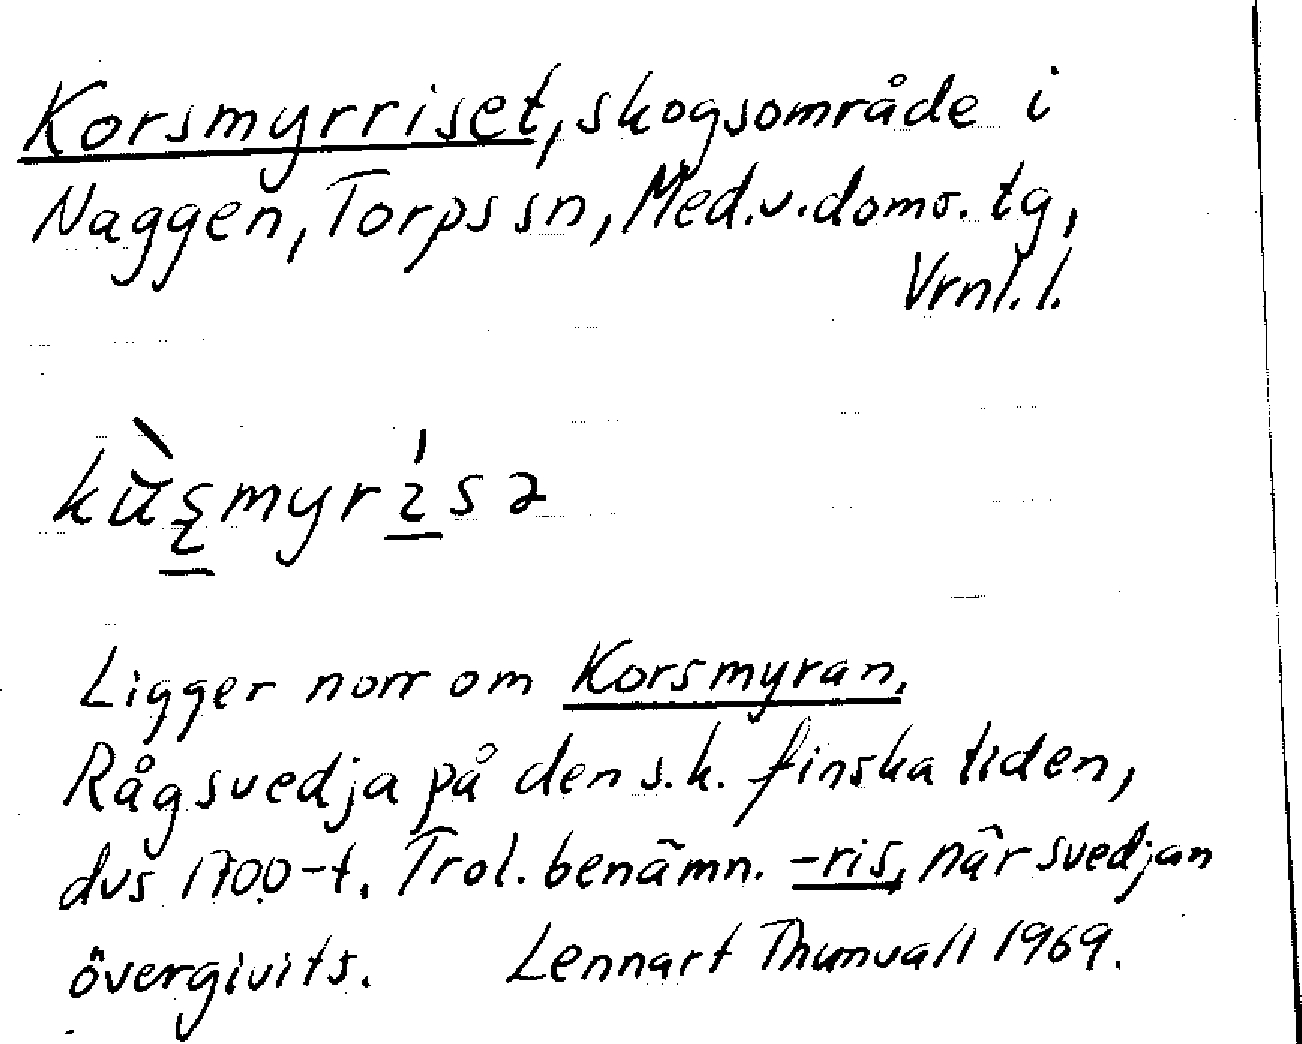 Korsmyrriset, skogsområde i
Naggen, Torps sn, Med.v.doms.tg,
Vrnl.l.
Ligger norr om Korsmyran.
Rågsvedja på den s.k. finska tiden,
dvs 1700-t. Trol. benämn. -ris, när svedjan
övergivits. Lennart Thunvall 1969.